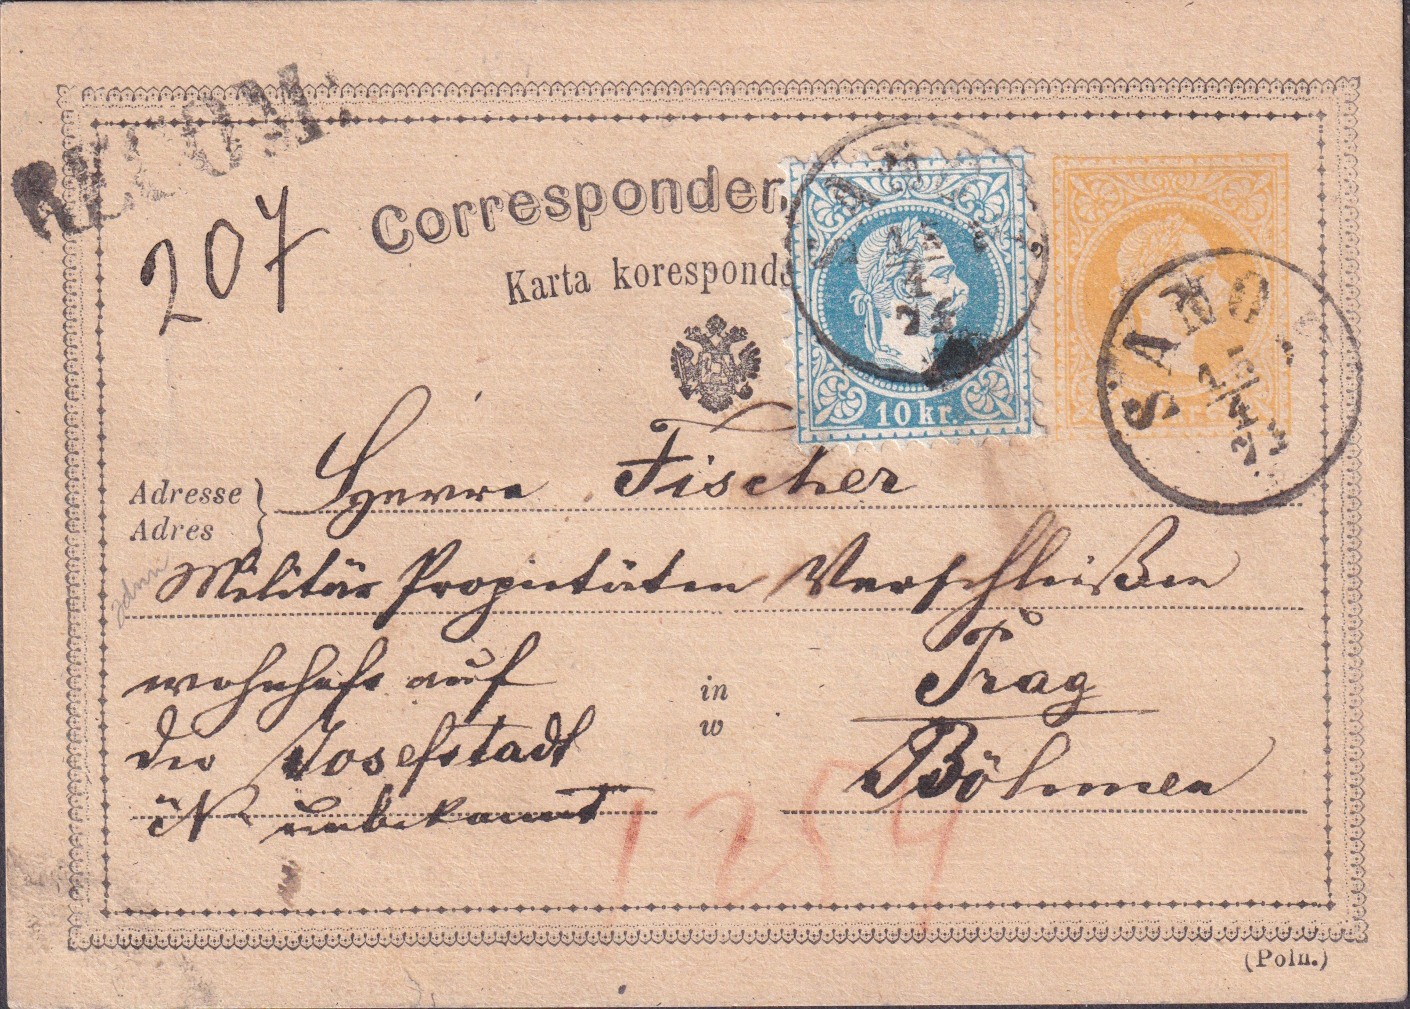 RECOM.
207
Corresponden
Karta koresponde
10 kr.
SANO
15/4
Adresse
Adres
Herrn Fischer
Militär Propritäten Verschleißer
wohnhaft auf
der Josefstadt
N unbekannt
in
w
Prag
Böhmen
(Poln.)